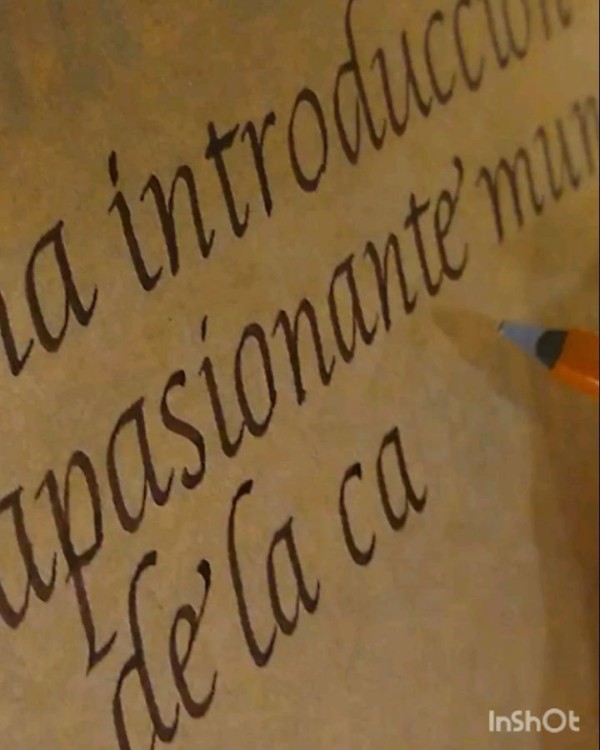 na introducción
apasionante mun
de la ca
InShOt